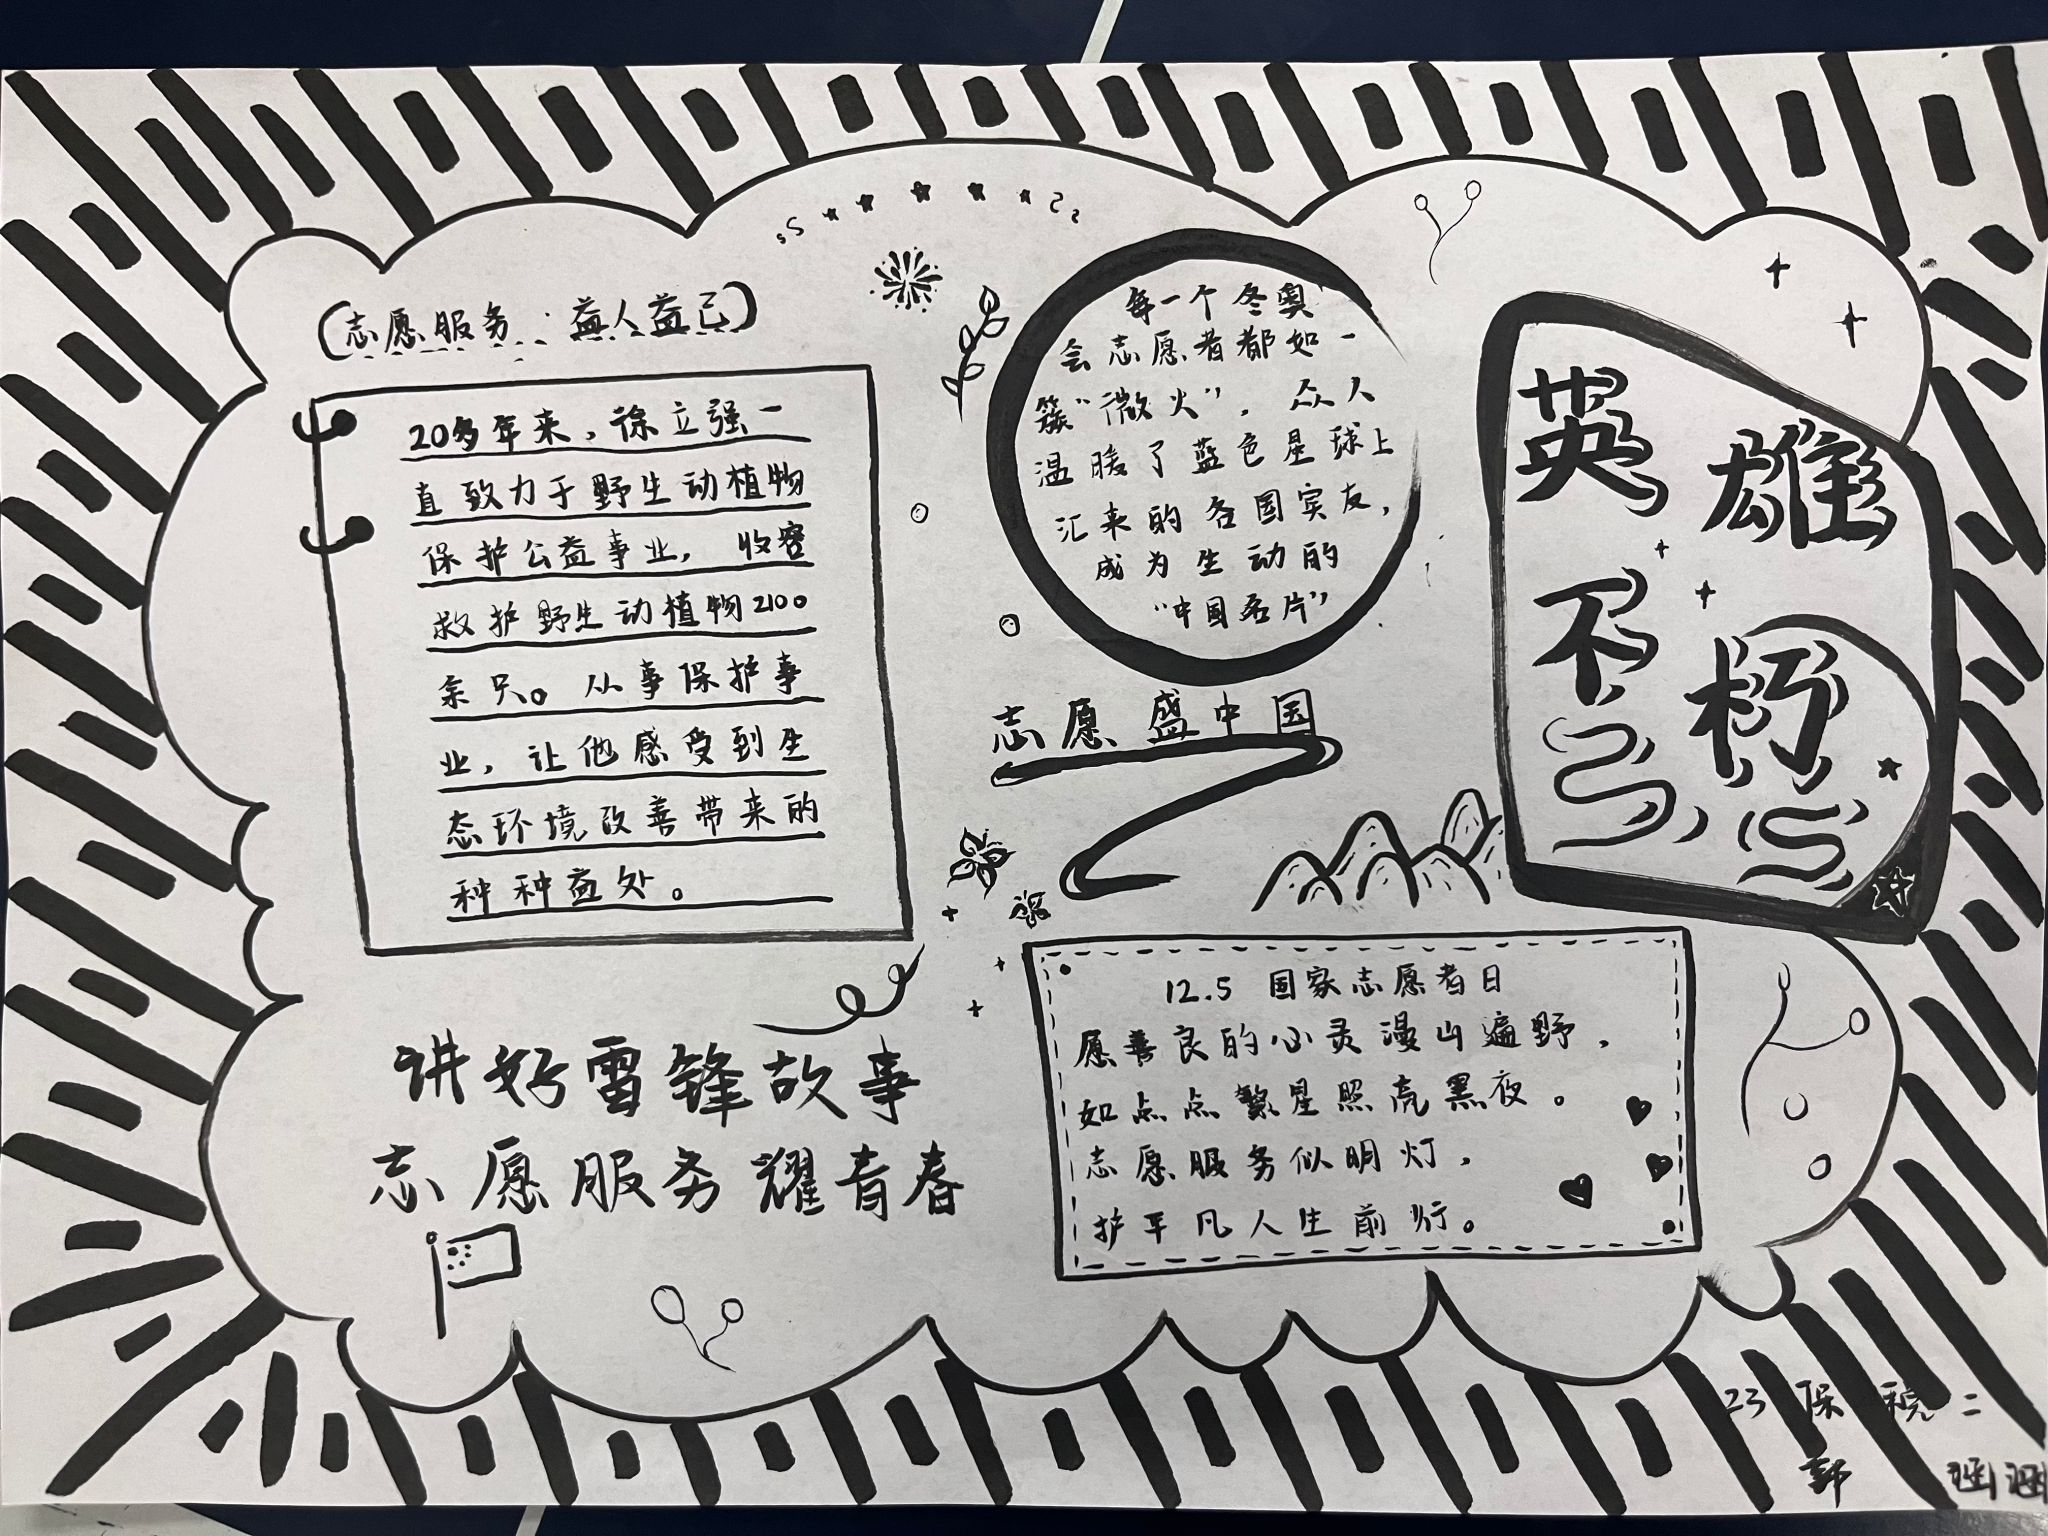 志愿服务 : 益人益己
20多年来，徐立强一
直致力于野生动植物
保护公益事业，收容
救护野生动植物2100
余只。从事保护事
业，让他感受到生
态环境改善带来的
种种益处。
每一个冬奥
会志愿者都如一
簇“微火”，众人
温暖了蓝色星球上
汇来的各国宾友，
成为生动的
“中国名片”
志愿盛中国
英雄
不朽
讲好雷锋故事
志愿服务耀青春
12.5 国家志愿者日
愿善良的心灵漫山遍野，
如点点繁星照亮黑夜。
志愿服务似明灯，
护平凡人生前行。
23 保税二
郭 涵涵